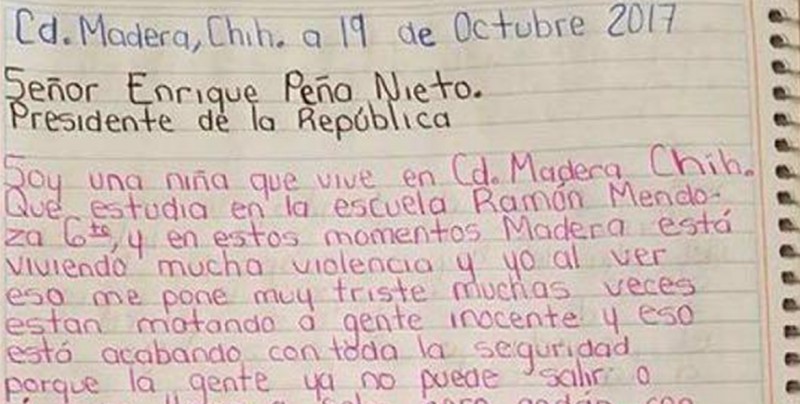 Cd. Madera, Chih. a 19 de Octubre 2017
Señor Enrique Peña Nieto.
Presidente de la República
Soy una niña que vive en Cd. Madera Chih.
Que estudia en la escuela Ramón Mendo-
za 6to, y en estos momentos Madera está
viviendo mucha violencia y yo al ver
eso me pone muy triste muchas veces
estan matando a gente inocente y eso
está acabando con toda la seguridad
porque la gente ya no puede salir a